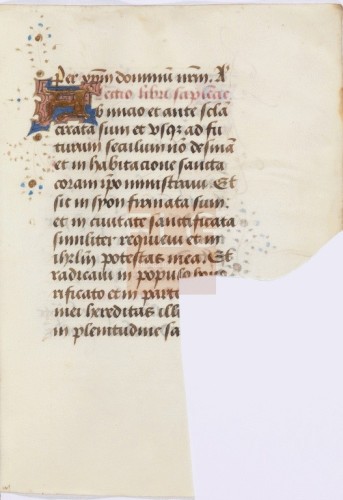 Per xpm dominū nrm. A
Lectio libri sapiētie.
Ab inicio et ante scla
creata sum et vsqz ad fu
turum seculum nō desinā
et in habitacione sancta
coram ipo ministraui. Et
sic in syon firmata sum.
et in ciuitate sanctificata
similiter requieui et in
ihrlm potestas mea. Et
radicaui in populo hono
rificato et in parte
mei hereditas ill
in plenitudine sa